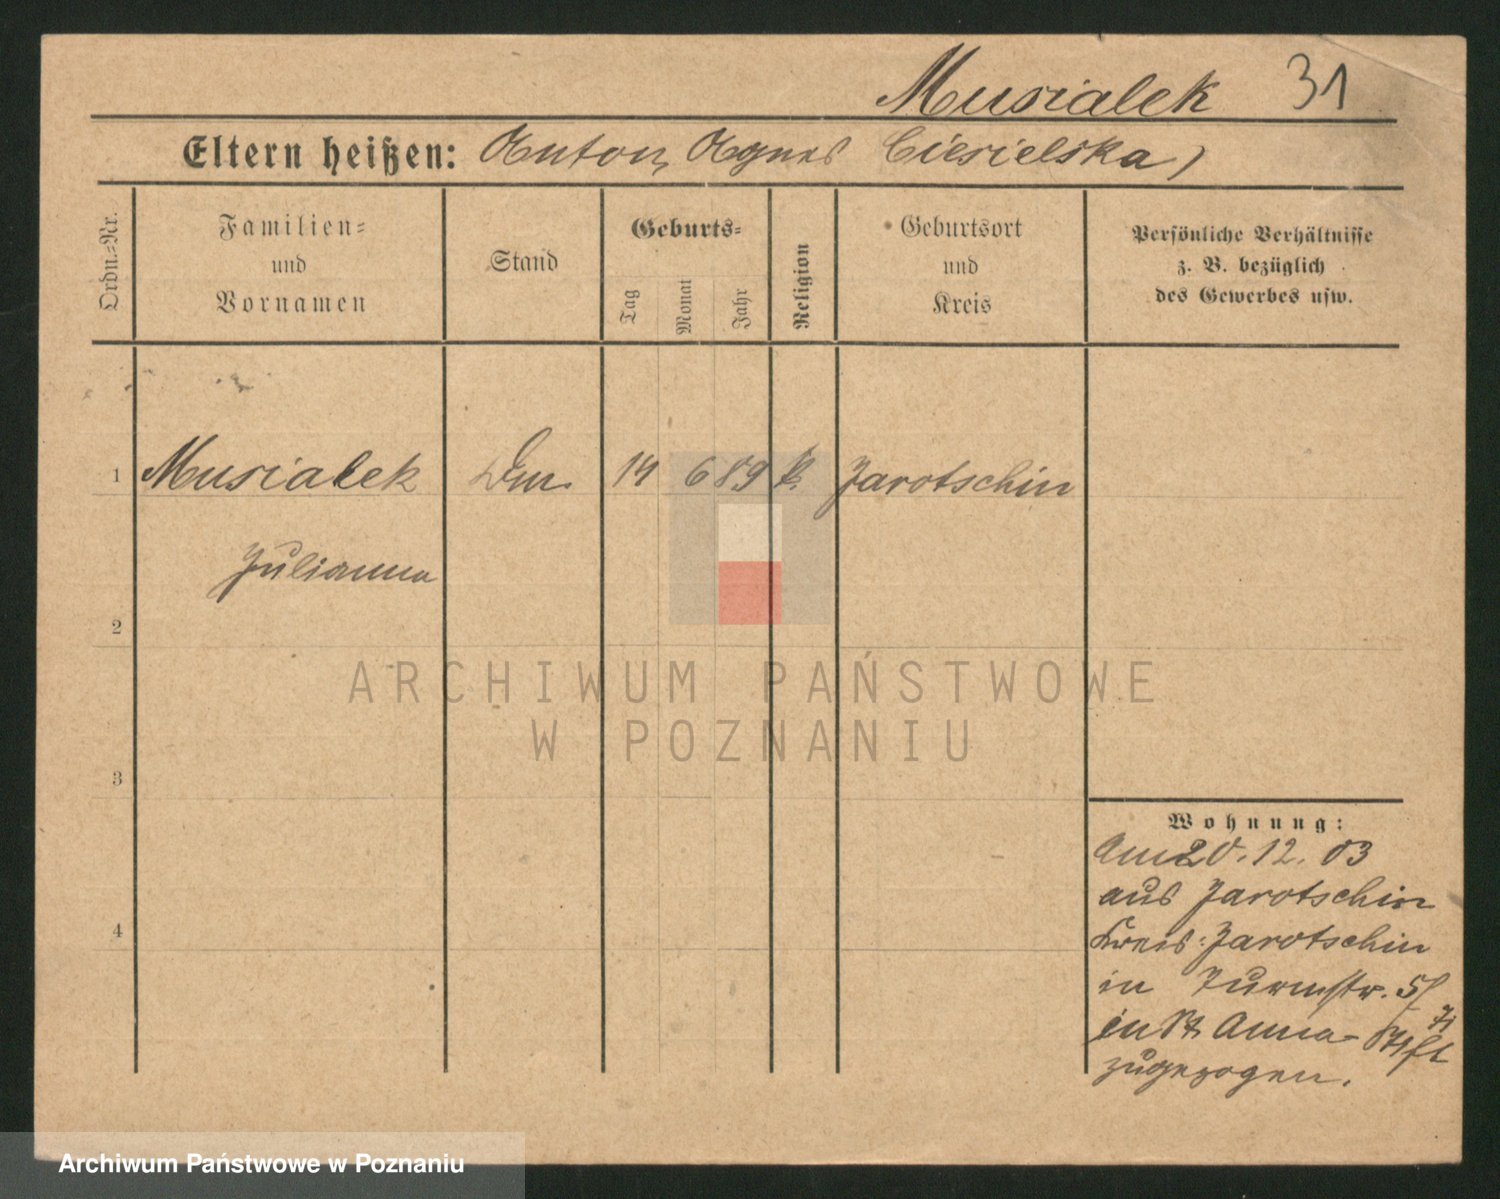 Musialek 31
Eltern heißen: Anton, Agnes Ciesielska)
Ordn.-Nr.
Familien-
und
Vornamen
Stand
Geburts-
Tag
Monat
Jahr
Religion
Geburtsort
und
Kreis
Persönliche Verhältnisse
z. B. bezüglich
des Gewerbes usw.
1 Musialek 14 6 89 k. Jarotschin
Julianna
2
3
4
ARCHIWUM PAŃSTWOWE
W POZNANIU
Wohnung:
Am 20. 12. 03
aus Jarotschin
Kreis: Jarotschin
in Turmstr. 5/
in St. Anna-Stift
zugezogen.
Archiwum Państwowe w Poznaniu